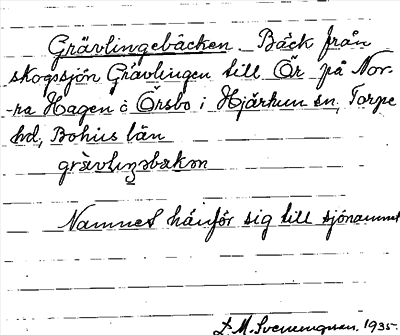 Grävlingebäcken. Bäck från
skogssjön Grävlingen till Ör på Nor-
-ra Hagen å Örsbo i Hjärtum sn, Torpe
hd, Bohus län
grävliŋəbɛkən
Namnet hänför sig till sjönamnet
D. M. Svenungsson. 1935.